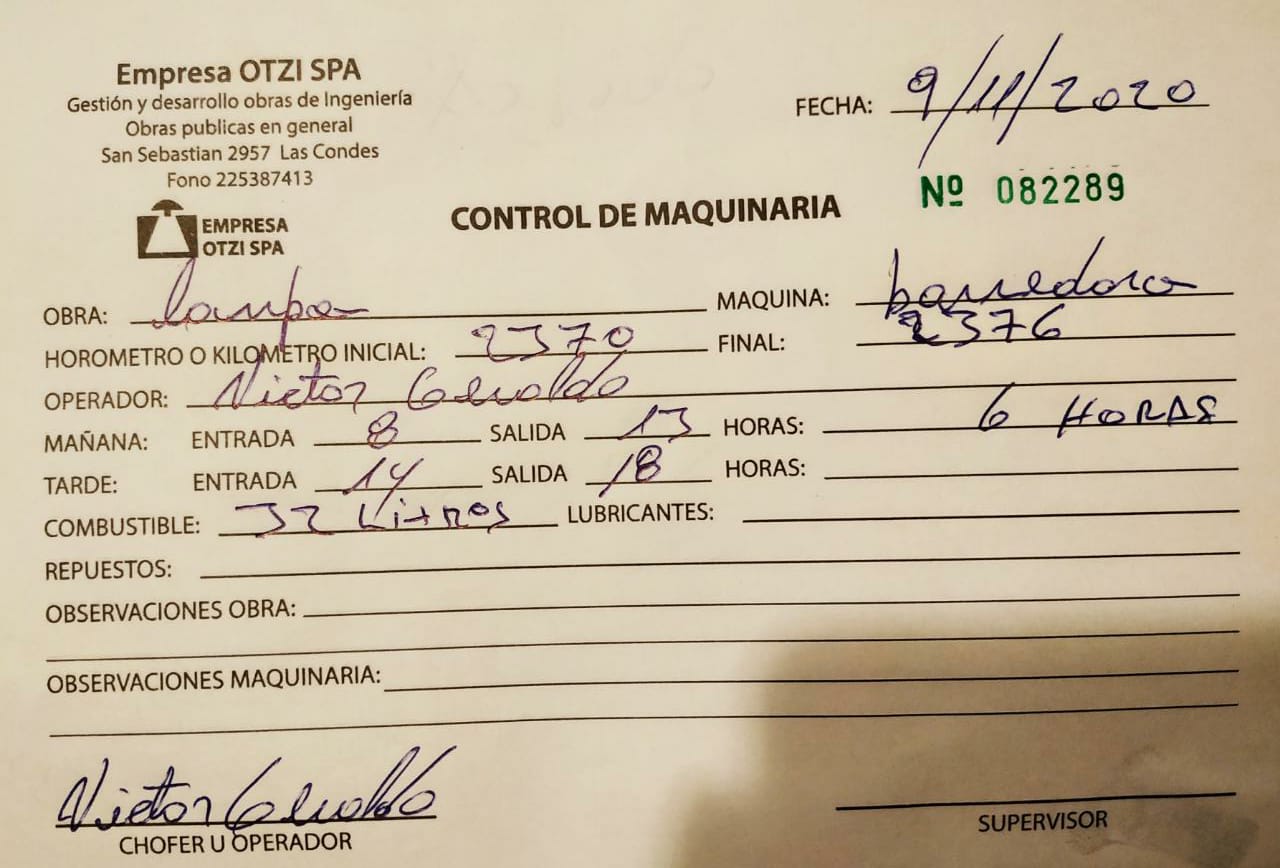 Empresa OTZI SPA
Gestión y desarrollo obras de Ingeniería
Obras publicas en general
San Sebastian 2957 Las Condes
Fono 225387413
EMPRESA
OTZI SPA
FECHA: 9/11/2020
Nº 082289
CONTROL DE MAQUINARIA
OBRA: lampa MAQUINA: barredora
HOROMETRO O KILOMETRO INICIAL: 2370 FINAL: 2376
OPERADOR: Victor
MAÑANA: ENTRADA 8 SALIDA 13 HORAS: 6 HORAS
TARDE: ENTRADA 14 SALIDA 18 HORAS:
COMBUSTIBLE: 32 Litros LUBRICANTES:
REPUESTOS:
OBSERVACIONES OBRA:
OBSERVACIONES MAQUINARIA:
Victor
CHOFER U OPERADOR
SUPERVISOR